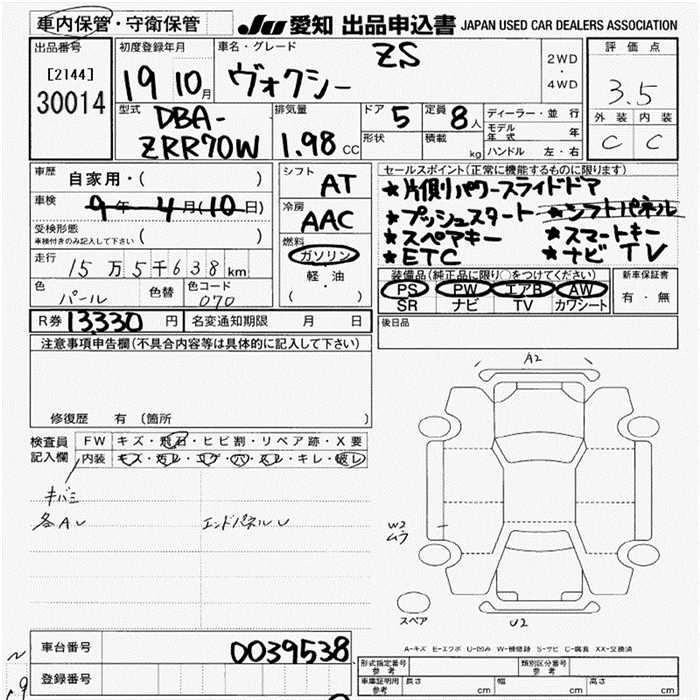 車内保管・守衛保管
JU 愛知 出品申込書 JAPAN USED CAR DEALERS ASSOCIATION
出品番号
[2144]
30014
初度登録年月
19 10月
車名・グレード
ZS
ヴォクシー
2WD
・
4WD
評価点
3.5
外装 内装
C C
型式
DBA-
ZRR70W
排気量
1.98 CC
ドア 5
形状
定員 8人
積載 kg
ディーラー・並行
モデル年式 年
ハンドル 左・右
車歴
自家用・( )
車検
9年 4月(10日)
受検形態
車検付きのみ記入して下さい ( )
走行
15万5千638km
色
パール
色替
色コード
070
シフト
AT
冷房
AAC
燃料
ガソリン
・
軽・油
( )
セールスポイント(正常に機能するものに限ります)
★片側パワースライドドア
★プッシュスタート ★シフトパネル
★スペアキー ★スマートキー
★ETC ★ナビTV
装備品(純正品に限り○をつけてください)
PS PW エアB AW
SR ナビ TV カワシート
新車保証書
有・無
R券 13,330円
名変通知期限 月 日
後日品
注意事項申告欄(不具合内容等は具体的に記入して下さい)
修復歴 有(箇所 )
検査員
記入欄
FW キズ・飛石・ヒビ割・リペア跡・X要
内装 キズ・汚レ・コゲ・穴・スレ・キレ・破レ
キバミ
各AU
エンドパネルU
A2
W2
ムラ
スペア
U2
A-キズ E-エクボ U-凹み W-補修跡 S-サビ C-腐食 XX-交換済
車台番号
0039538
登録番号
形式指定番号
参考
類別区分番号
参考
車庫証明用
参考
長さ cm
幅 cm
高さ cm